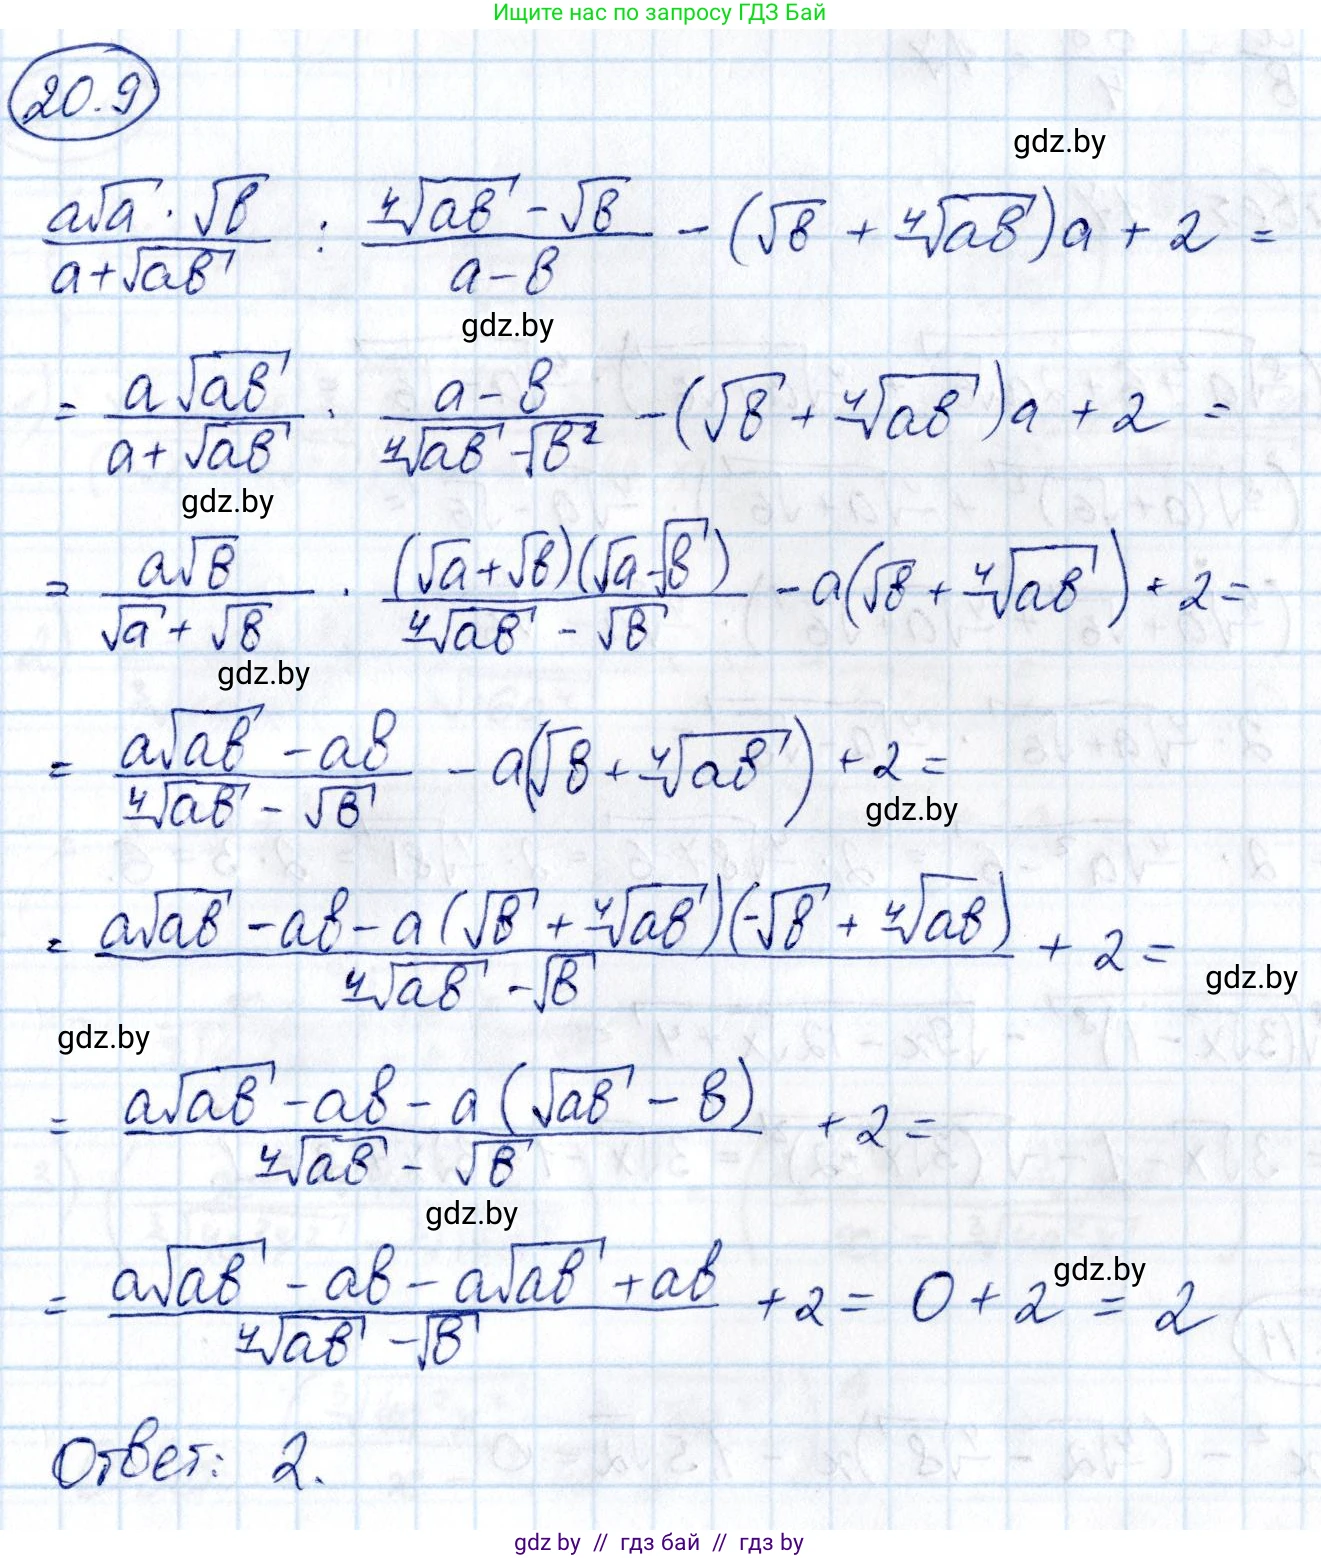 Ищите нас по запросу ГДЗ Бай
20.9
gdz.by
a√a · √b / (a+√ab) : (⁴√ab - √b) / (a-b) - (√b + ⁴√ab)a + 2 =
gdz.by
= a√ab / (a+√ab) · (a-b) / (⁴√ab - √b²) - (√b + ⁴√ab)a + 2 =
gdz.by
= a√b / (√a + √b) · (√a+√b)(√a-√b) / (⁴√ab - √b) - a(√b + ⁴√ab) + 2 =
gdz.by
= (a√ab - ab) / (⁴√ab - √b) - a(√b + ⁴√ab) + 2 =
gdz.by
= (a√ab - ab - a(√b + ⁴√ab)(-√b + ⁴√ab)) / (⁴√ab - √b) + 2 =
gdz.by
gdz.by
= (a√ab - ab - a(√ab - b)) / (⁴√ab - √b) + 2 =
gdz.by
= (a√ab - ab - a√ab + ab) / (⁴√ab - √b) + 2 = 0 + 2 = 2
gdz.by
Ответ: 2.
gdz.by // гдз бай // гдз by